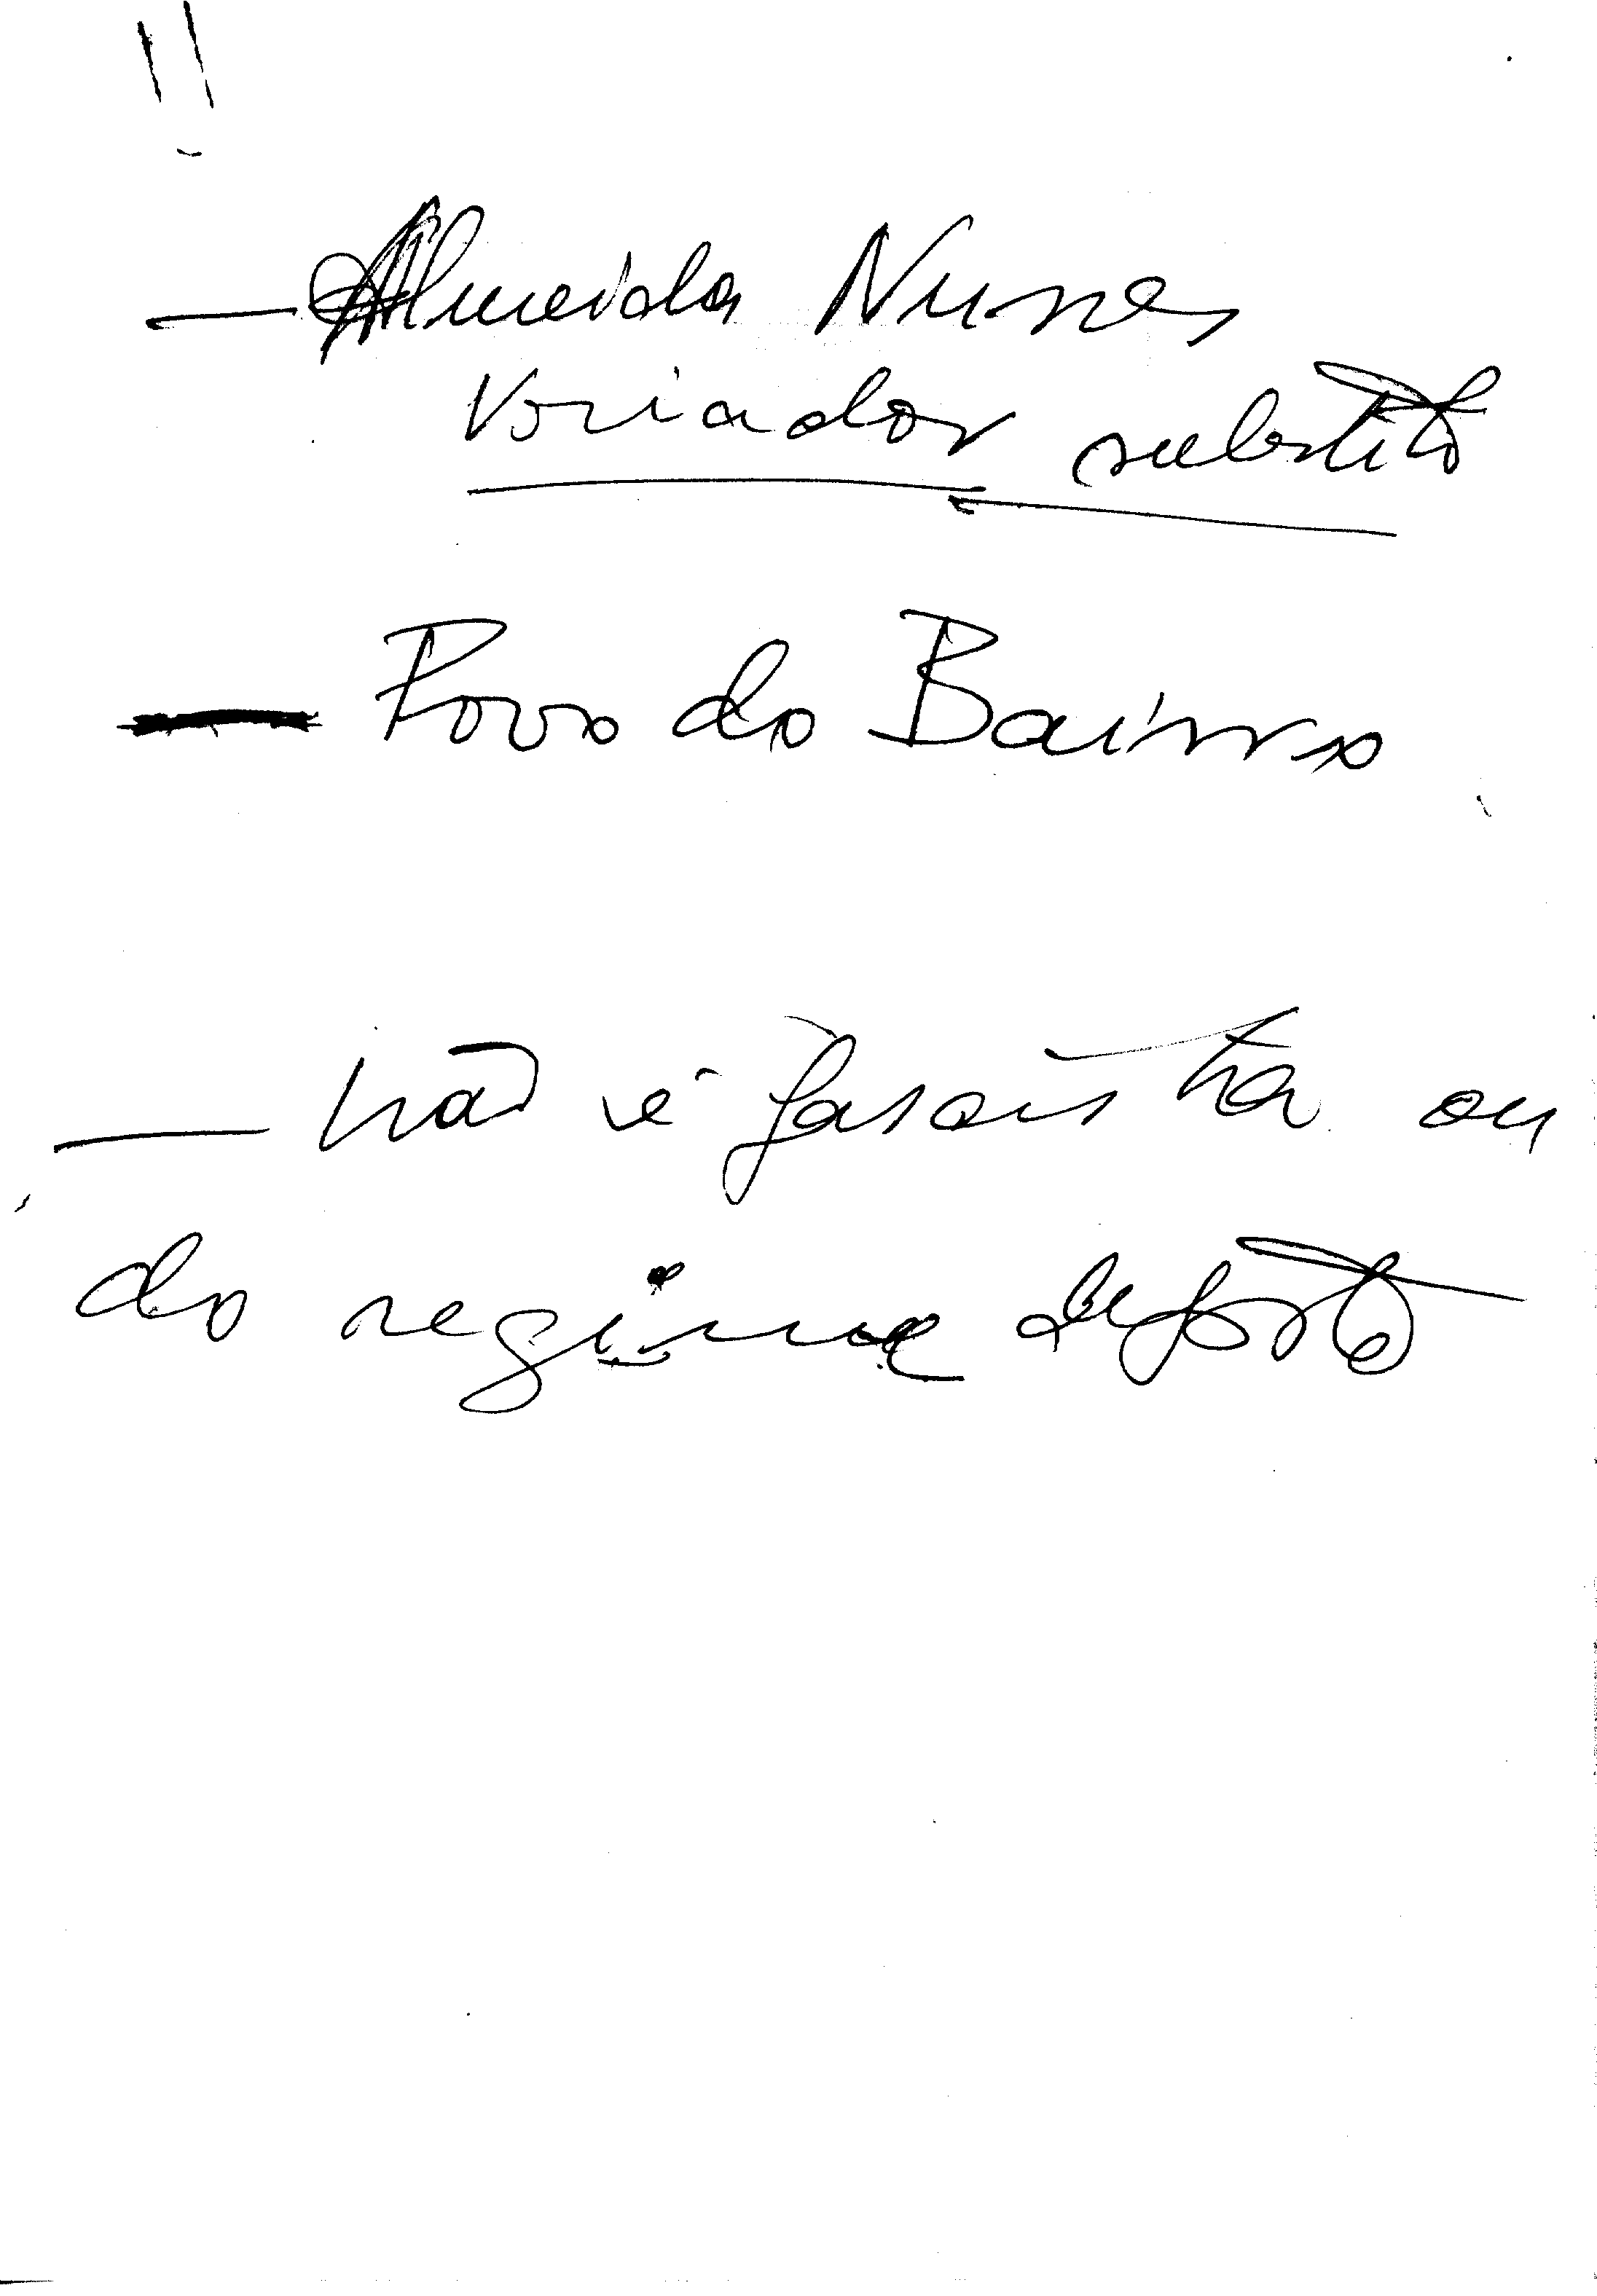 !!
— Almeida Nunes
Voriador substito
— Povo do Bairro
— não é fascista ou
do regime deposto